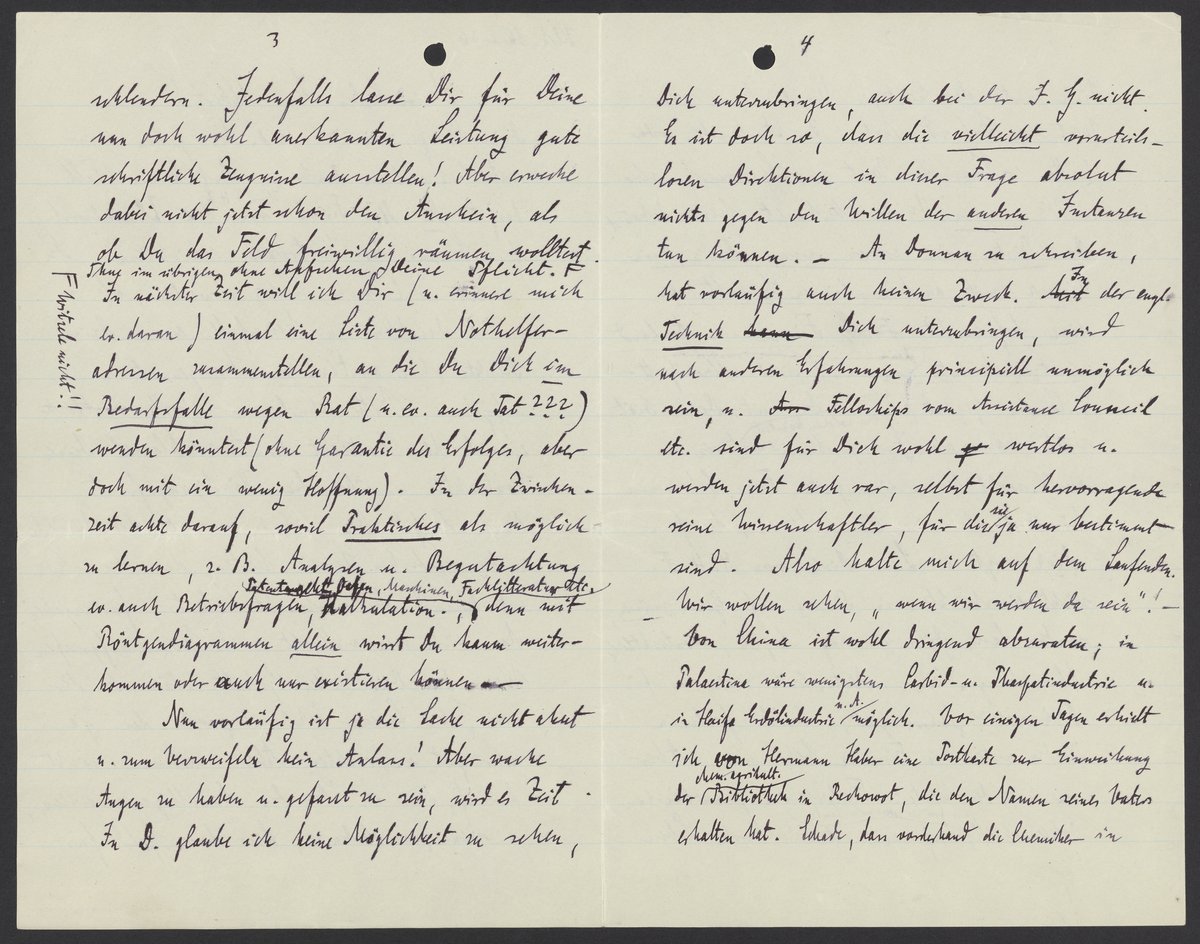 3
schlendern. Jedenfalls lasse Dir für Deine
nun doch wohl anerkannten Leistung gute
schriftliche Zeugnisse ausstellen! Aber erwecke
dabei nicht jetzt schon den Anschein, als
ob Du das Feld freiwillig räumen wolltest.
Thue im übrigen ohne Aufsehen Deine Pflicht. F
F Witzele nicht!!
In nächster Zeit will ich Dir (u. erinnere mich
ev. daran) einmal eine Liste von Nothelfer-
adressen zusammenstellen, an die Du Dich im
Bedarfsfalle wegen Rat (u. ev. auch Tat ???)
wenden könntest (ohne Garantie des Erfolges, aber
doch mit ein wenig Hoffnung). In der Zwischen-
zeit achte darauf, soviel Praktisches als möglich
zu lernen, z. B. Analysen u. Begutachtung
Patentrecht, Oefen, Maschinen, Fachlitteratur etc.
ev. auch Betriebsfragen, Kalkulation., denn mit
Röntgendiagrammen allein wirst Du kaum weiter-
kommen oder auch nur existieren können —
Nun vorläufig ist ja die Sache nicht akut
u. zum Verzweifeln kein Anlass! Aber wache
Augen zu haben u. gefasst zu sein, wird es Zeit.
In D. glaube ich keine Möglichkeit zu sehen,
4
Dich unterzubringen, auch bei der I. G. nicht.
Es ist doch so, dass die vielleicht vorurteils-
losen Direktionen in dieser Frage absolut
nichts gegen den Willen der anderen Instanzen
tun können. — An Donnan zu schreiben,
hat vorläufig auch keinen Zweck. In der engl.
Technik kann Dich unterzubringen, wird
nach anderen Erfahrungen principiell unmöglich
sein, u. Felloships vom Assistance Council
etc. sind für Dich wohl wertlos u.
werden jetzt auch rar, selbst für hervorragende
reine Wissenschaftler, für die sie ja nur bestimmt
sind. Also halte mich auf dem Laufenden.
Wir wollen sehen, „wenn wir werden da sein"! —
Von China ist wohl dringend abzuraten; in
Palaestina wäre wenigstens Carbid- u. Phosphatindustrie u.
in Haifa Erdölindustrie u. A. möglich. Vor einigen Tagen erhielt
ich von Hermann Haber eine Postkarte zur Einweihung
der chem. agrikult. Bibliothek in Rechowot, die den Namen seines Vaters
erhalten hat. Schade, dass vorderhand die Chemiker in